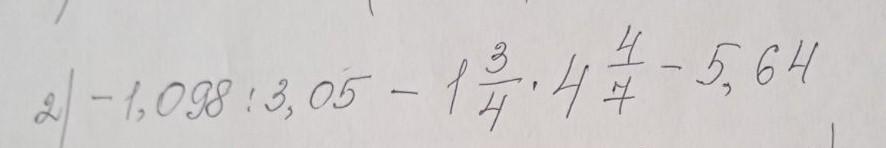 2) -1,098 : 3,05 - 1 3/4 · 4 4/7 - 5,64